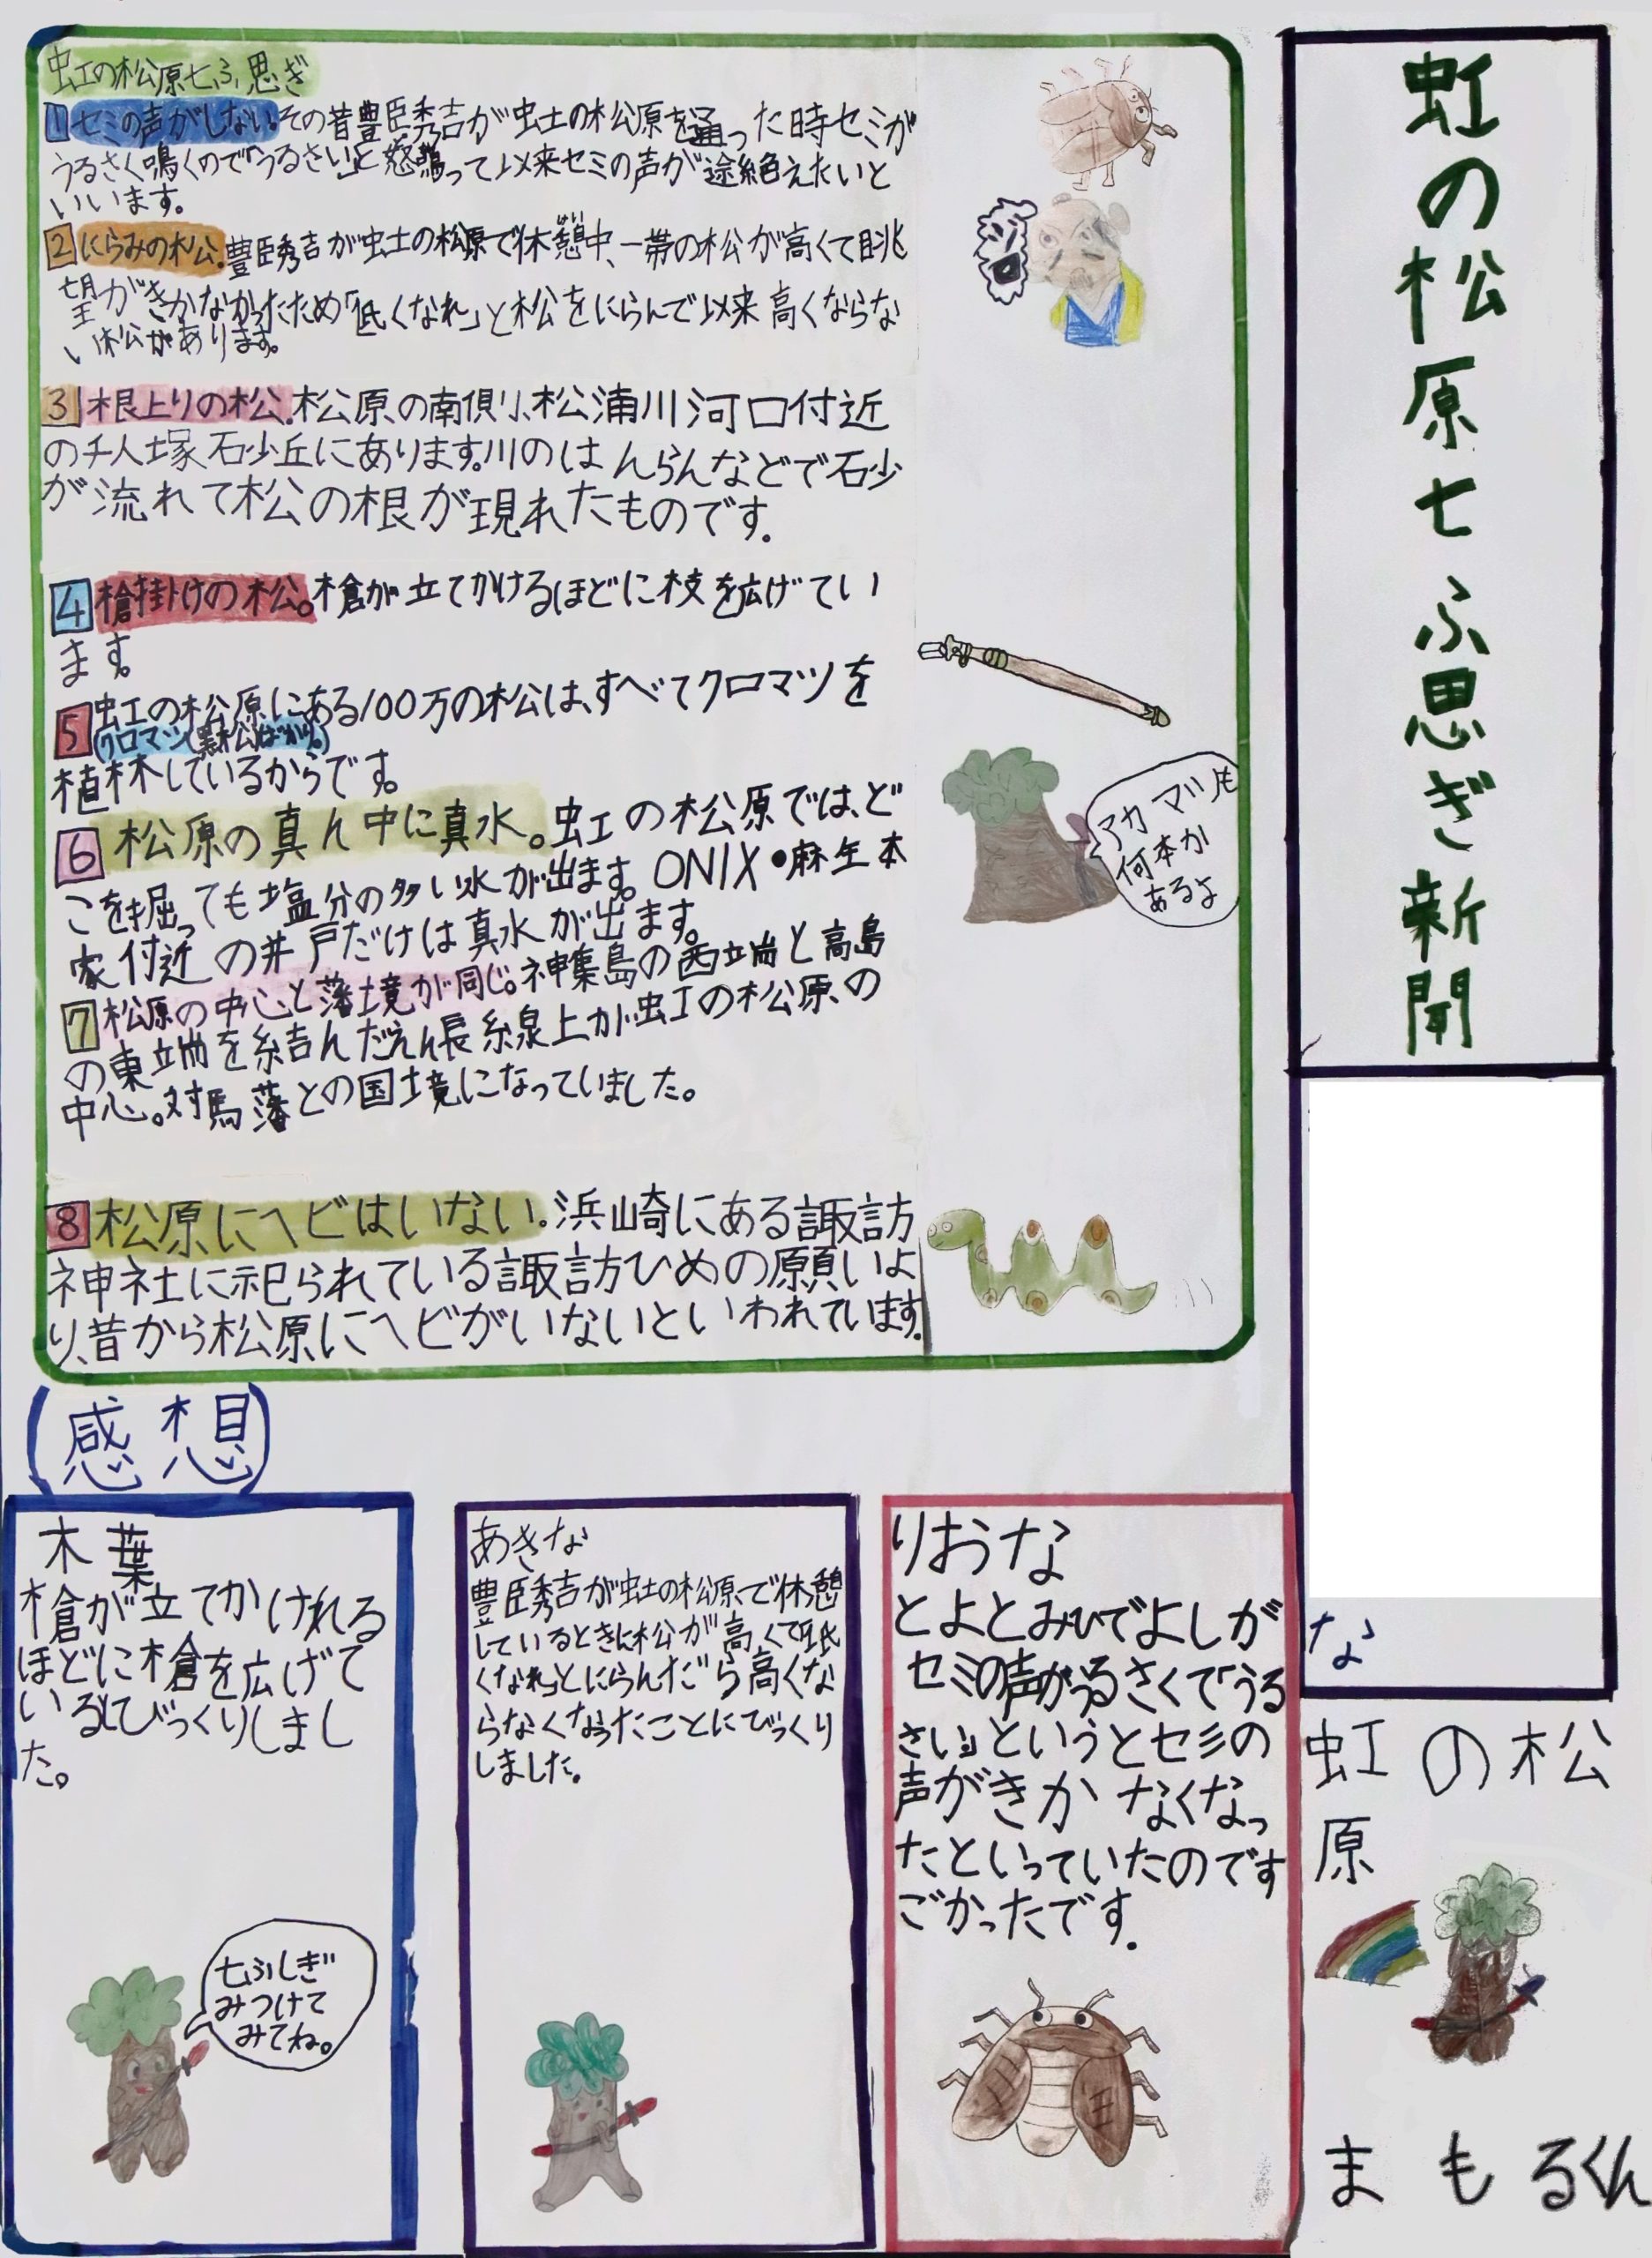 虹の松原七ふ思ぎ新聞
虹の松原七ふ思ぎ
1 セミの声がしない。その昔豊臣秀吉が虹の松原を通った時セミが
うるさく鳴くので「うるさい」と怒鳴って以来セミの声が途絶えたいと
いいます。
2 にらみの松。豊臣秀吉が虹の松原で休憩中、一帯の松が高くて眺
望がきかなかったため「低くなれ」と松をにらんで以来高くならな
い松があります。
3 根上りの松。松原の南側、松浦川河口付近
の千人塚砂丘にあります。川のはんらんなどで砂
が流れて松の根が現れたものです。
4 槍掛けの松。槍が立てかけるほどに枝を広げてい
ます。
5 虹の松原にある100万の松は、すべてクロマツを
(クロマツ(黒松)ばかり。)
植林しているからです。
6 松原の真ん中に真水。虹の松原では、ど
こを掘っても塩分の多い水が出ます。ONIX・麻生本
家付近の井戸だけは真水が出ます。
7 松原の中心と藩境が同じ。神集島の西端と高島
の東端を結んだえん長線上が虹の松原の
中心。対馬藩との国境になっていました。
8 松原にヘビはいない。浜崎にある諏訪
神社に祀られている諏訪ひめの願いよ
り、昔から松原にヘビがいないといわれています。
アカマツも
何本か
あるよ
な
虹の松
原
まもるくん
(感想)
りおな
とよとみひでよしが
セミの声がうるさくて「うる
さい」というとセミの
声がきかなくなっ
たといっていたのです
ごかったです。
あきな
豊臣秀吉が虹の松原で休憩
しているときに松が高くて「低
くなれ」とにらんだら高くな
らなくなったことにびっくり
しました。
木葉
槍が立てかけれる
ほどに槍を広げて
いるとびっくりしまし
た。
七ふしぎ
みつけて
みてね。